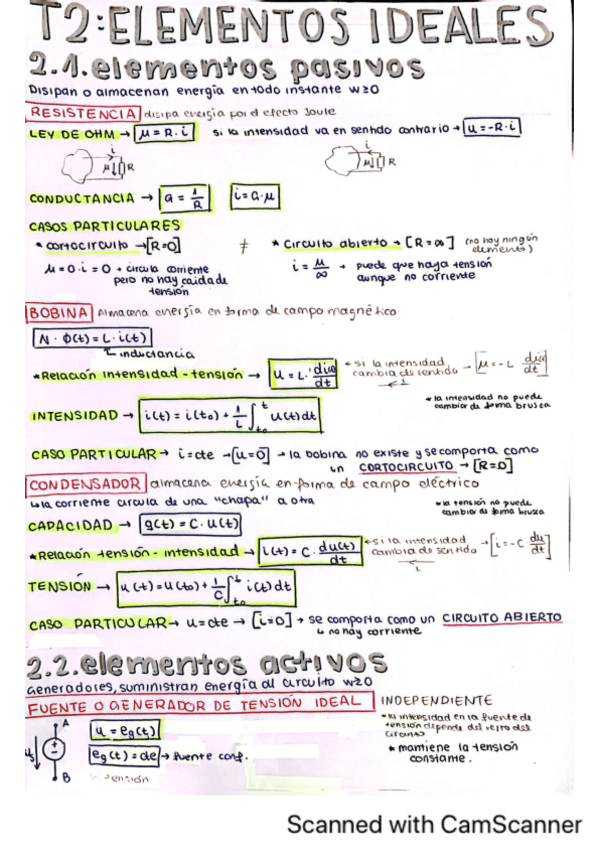 T2: ELEMENTOS IDEALES
2.1. elementos pasivos
Disipan o almacenan energía en todo instante w≥0
RESISTENCIA disipa energía por el efecto Joule
LEY DE OHM → u = R·i si la intensidad va en sentido contrario → u = -R·i
i
u R
i
u R
CONDUCTANCIA → G = 1/R i = G·u
CASOS PARTICULARES
* cortocircuito → [R=0] ≠ * circuito abierto → [R=∞] (no hay ningún elemento)
u = 0·i = 0 → circula corriente pero no hay caída de tensión
i = u/∞ → puede que haya tensión aunque no corriente
BOBINA Almacena energía en forma de campo magnético
N · Φ(t) = L · i(t)
inductancia
*Relación intensidad - tensión → u = L · di(t)/dt ← si la intensidad cambia de sentido → [u = -L di(t)/dt]
* la intensidad no puede cambiar de forma brusca
INTENSIDAD → i(t) = i(t₀) + 1/L ∫ₜ₀ᵗ u(t) dt
CASO PARTICULAR → i = cte → [u=0] → la bobina no existe y se comporta como
un CORTOCIRCUITO → [R=0]
CONDENSADOR almacena energía en forma de campo eléctrico
↳ la corriente circula de una "chapa" a otra
* la tensión no puede cambiar de forma brusca
CAPACIDAD → q(t) = C · u(t)
*Relación tensión - intensidad → i(t) = C · du(t)/dt ← si la intensidad cambia de sentido → [i = -C du/dt]
i
TENSIÓN → u(t) = u(t₀) + 1/C ∫ₜ₀ᵗ i(t) dt
CASO PARTICULAR → u = cte → [i=0] → se comporta como un CIRCUITO ABIERTO
↳ no hay corriente
2.2. elementos activos
Generadores, suministran energía al circuito w≥0
FUENTE O GENERADOR DE TENSIÓN IDEAL INDEPENDIENTE
* la intensidad en la fuente de tensión depende del resto del circuito
* mantiene la tensión constante.
A
u = eg(t)
eg(t) = cte → fuente cont.
B
tensión
Scanned with CamScanner